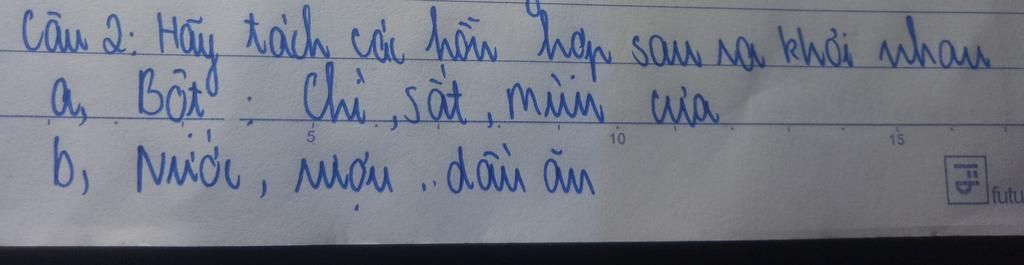 Câu 2: Hãy tách các hỗn hợp sau ra khỏi nhau
a, Bột : Chì, sắt, mùn cưa
5 10 15
b, Nước, rượu .. dầu ăn
futu